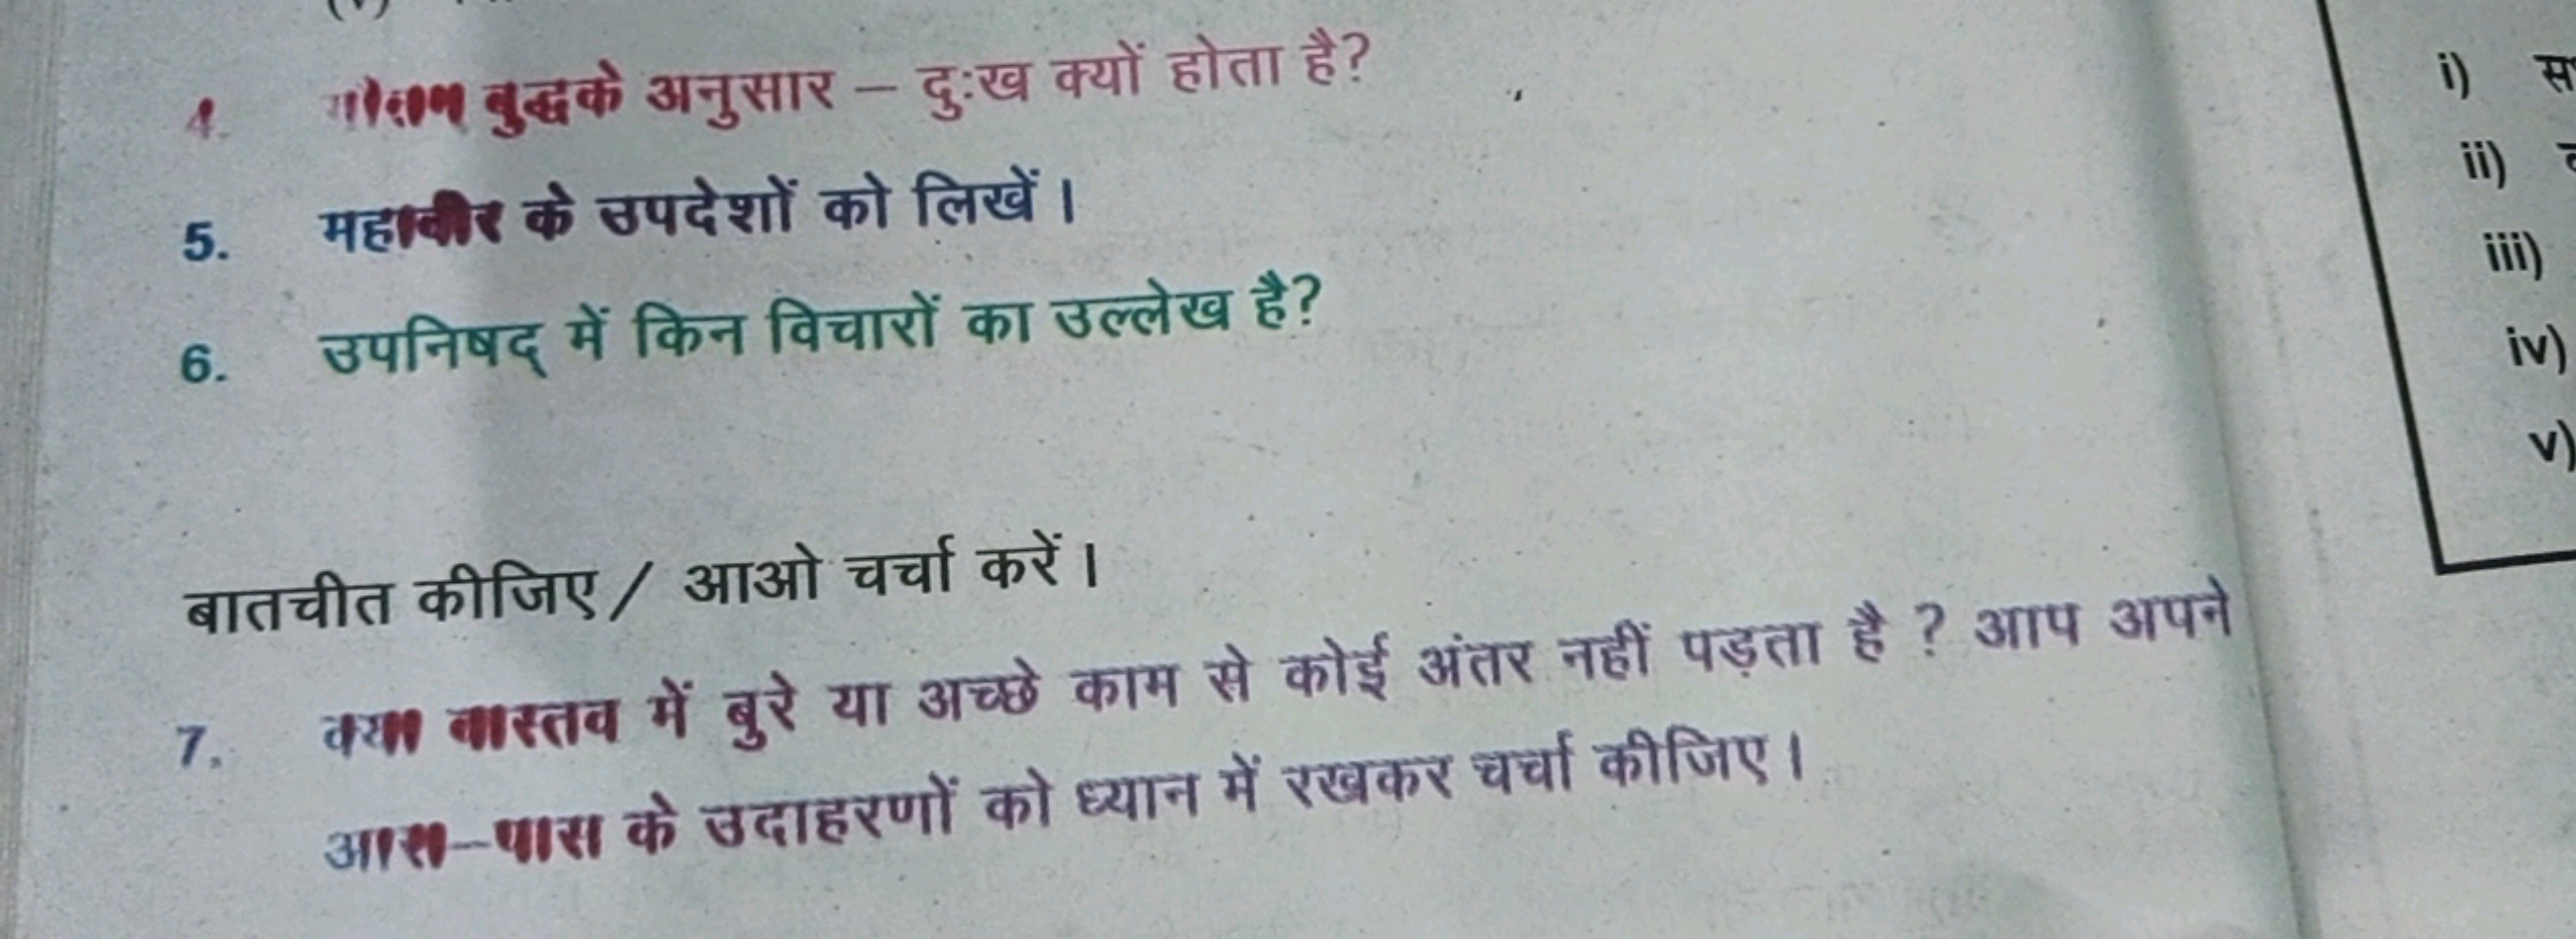 4. गौतम बुद्धके अनुसार – दुःख क्यों होता है?
5. महावीर के उपदेशों को लिखें।
6. उपनिषद् में किन विचारों का उल्लेख है?
बातचीत कीजिए / आओ चर्चा करें।
7. क्या वास्तव में बुरे या अच्छे काम से कोई अंतर नहीं पड़ता है ? आप अपने
आस–पास के उदाहरणों को ध्यान में रखकर चर्चा कीजिए।
i)
ii)
iii)
iv)
v)